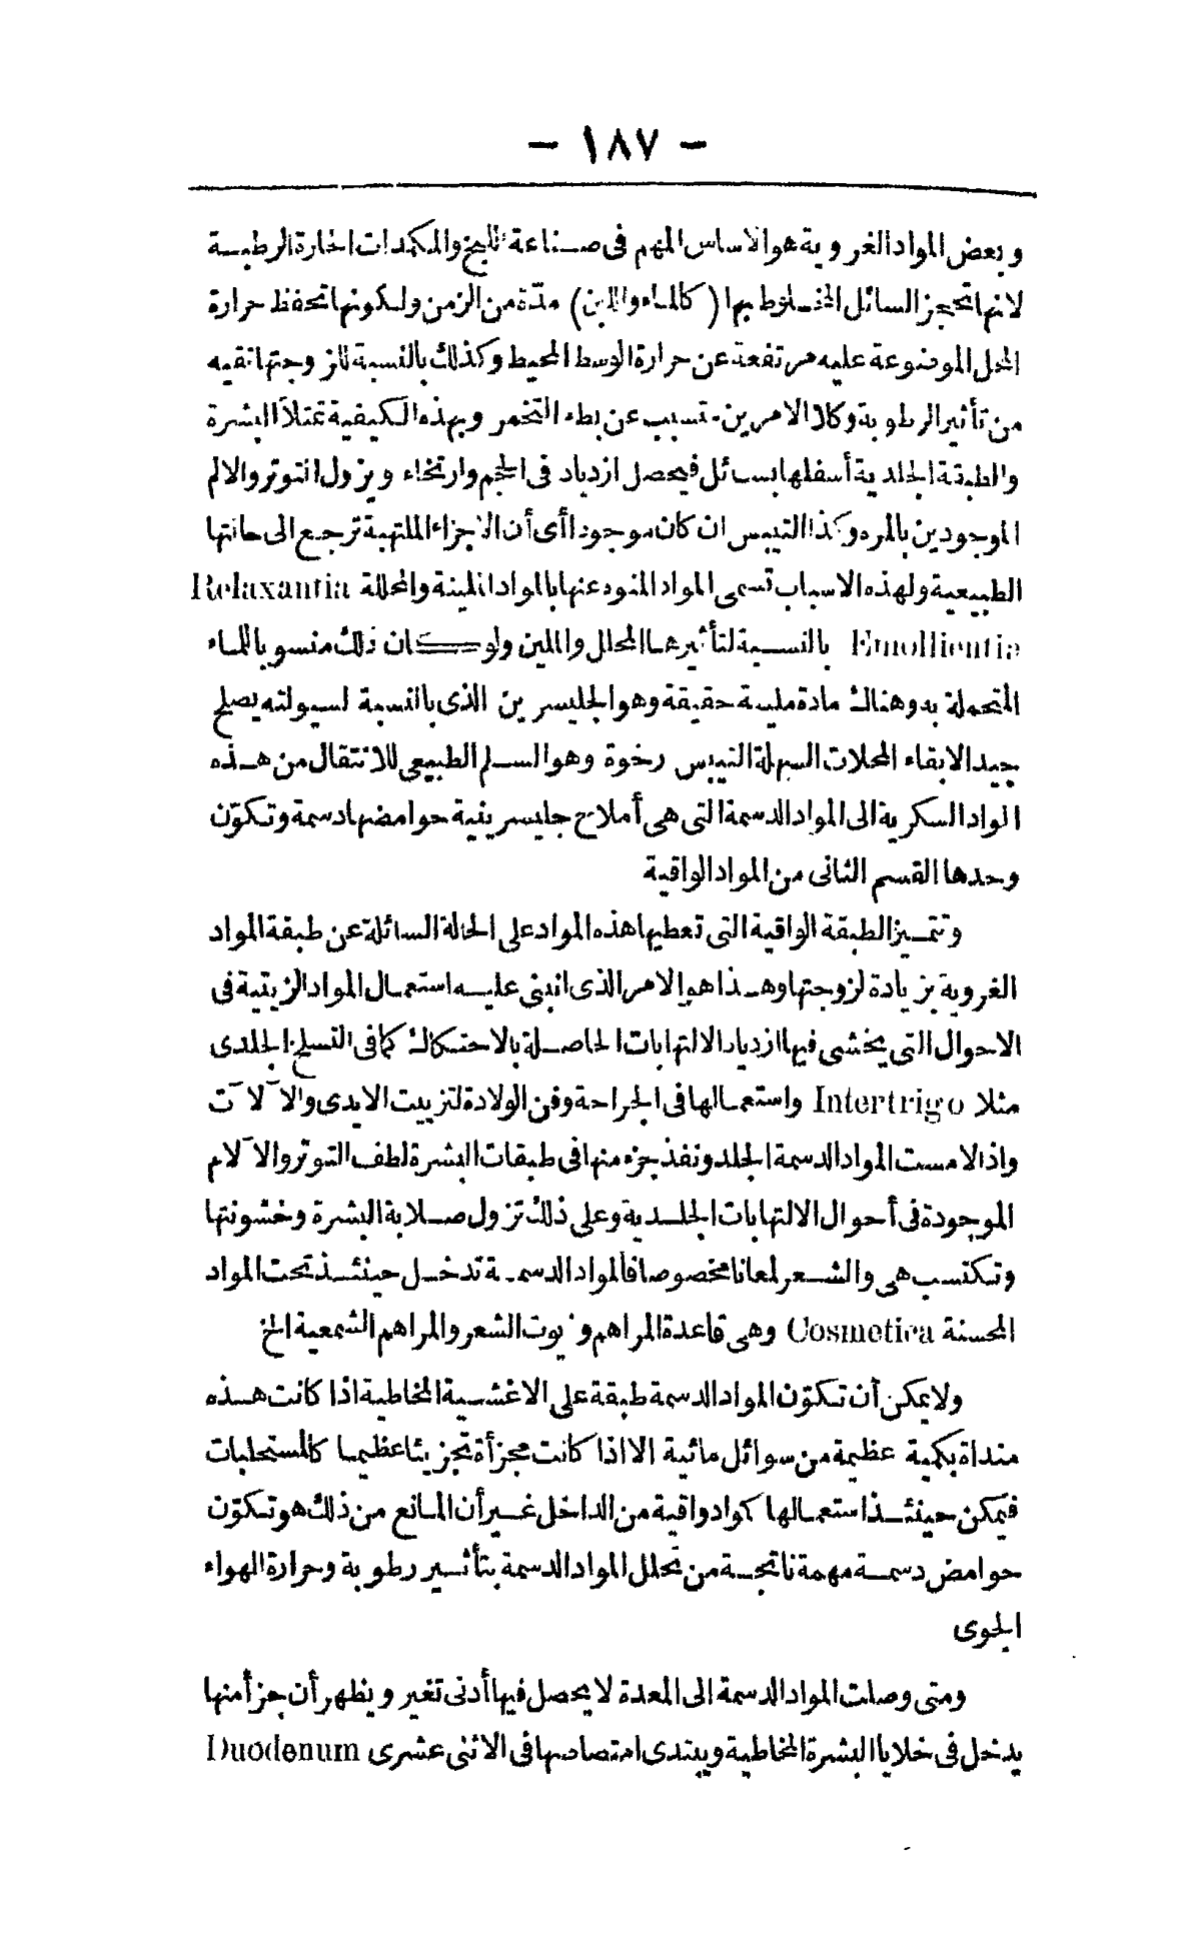 - ١٨٧ -
وبعض المواد الغروية هو الاساس المهم فى صناعة اللبخ والمكمدات الحارة الرطبة
لانها تحجز السائل المخلوط بها (كالماء واللبن) مدّة من الزمن ولكونها تحفظ حرارة
المحل الموضوعة عليه مرتفعة عن حرارة الوسط المحيط وكذلك بالنسبة للزوجتها تقيه
من تأثير الرطوبة وكلا الامرين تسبب عن بطء التخمر وبهذه الكيفية تمتلأ البشرة
والطبقة الجلدية أسفلها بسائل فيحصل ازدياد فى الحجم وارتخاء ويزول التوتر والالم
الموجودين بالمره وكذا التيبس ان كان موجودا أى أن الاجزاء الملتهبة ترجع الى حالتها
الطبيعية ولهذه الاسباب تسمى المواد المنوه عنها بالمواد الملينة والمحللة Relaxantia
Emollientia بالنسبة لتأثيرها المحلل والملين ولو كان ذلك منسوبا للماء
المتحملة به وهناك مادة ملينة حقيقة وهو الجليسرين الذى بالنسبة لسيولته يصلح
جيدا لابقاء المحلات السهلة التيبس رخوة وهو السلم الطبيعى للانتقال من هذه
المواد السكرية الى المواد الدسمة التى هى أملاح جليسرينية حوامضها دسمة وتكوّن
وحدها القسم الثانى من المواد الواقية
وتتميز الطبقة الواقية التى تعطيها هذه المواد على الحالة السائلة عن طبقة المواد
الغروية بزيادة لزوجتها وهذا هو الامر الذى انبنى عليه استعمال المواد الزيتية فى
الاحوال التى يخشى فيها ازدياد الالتهابات الحاصلة بالاحتكاك كما فى التسلخ الجلدى
مثلا Intertrigo واستعمالها فى الجراحة وفن الولادة لتزييت الايدى والآلات
واذا لامست المواد الدسمة الجلد ونفذ جزء منها فى طبقات البشرة لطف التوتر والآلام
الموجودة فى أحوال الالتهابات الجلدية وعلى ذلك تزول صلابة البشرة وخشونتها
وتكتسب هى والشعر لمعانا مخصوصا فالمواد الدسمة تدخل حينئذ تحت المواد
المحسنة Cosmetica وهى قاعدة المراهم وزيوت الشعر والمراهم الشمعية الخ
ولا يمكن أن تكوّن المواد الدسمة طبقة على الاغشية المخاطية اذا كانت هذه
منداة بكمية عظيمة من سوائل مائية الا اذا كانت مجزأة تجزيئا عظيما كالمستحلبات
فيمكن حينئذ استعمالها كمواد واقية من الداخل غير أن المانع من ذلك هو تكوّن
حوامض دسمة مهمة ناتجة من تحلل المواد الدسمة بتأثير رطوبة وحرارة الهواء
الجوى
ومتى وصلت المواد الدسمة الى المعدة لا يحصل فيها أدنى تغير ويظهر أن جزأ منها
يدخل فى خلايا البشرة المخاطية ويبتدى امتصاصها فى الاثنى عشرى Duodenum